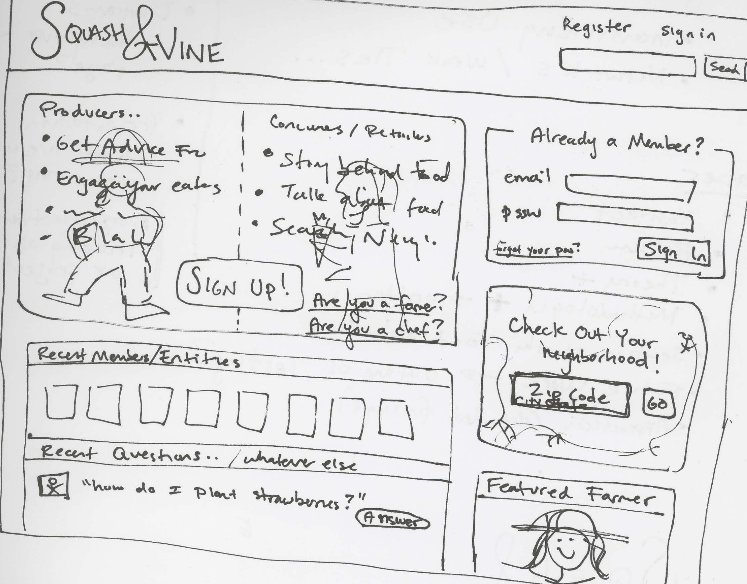 SQUASH & VINE
Register Sign in
Search
Producers..
• Get Advice
• Engage your eaters
•
• Blah
Consumers / Retailers
• Story behind food
• Talk about food
• Search
SIGN UP!
Are you a farmer?
Are you a chef?
Already a Member?
email
pssw
forgot your pass?
Sign In
Check Out Your
Neighborhood!
Zip Code
City State
GO
Recent Members/Entities
Recent Questions.. /whatever else
"how do I plant strawberries?"
Answer
Featured Farmer